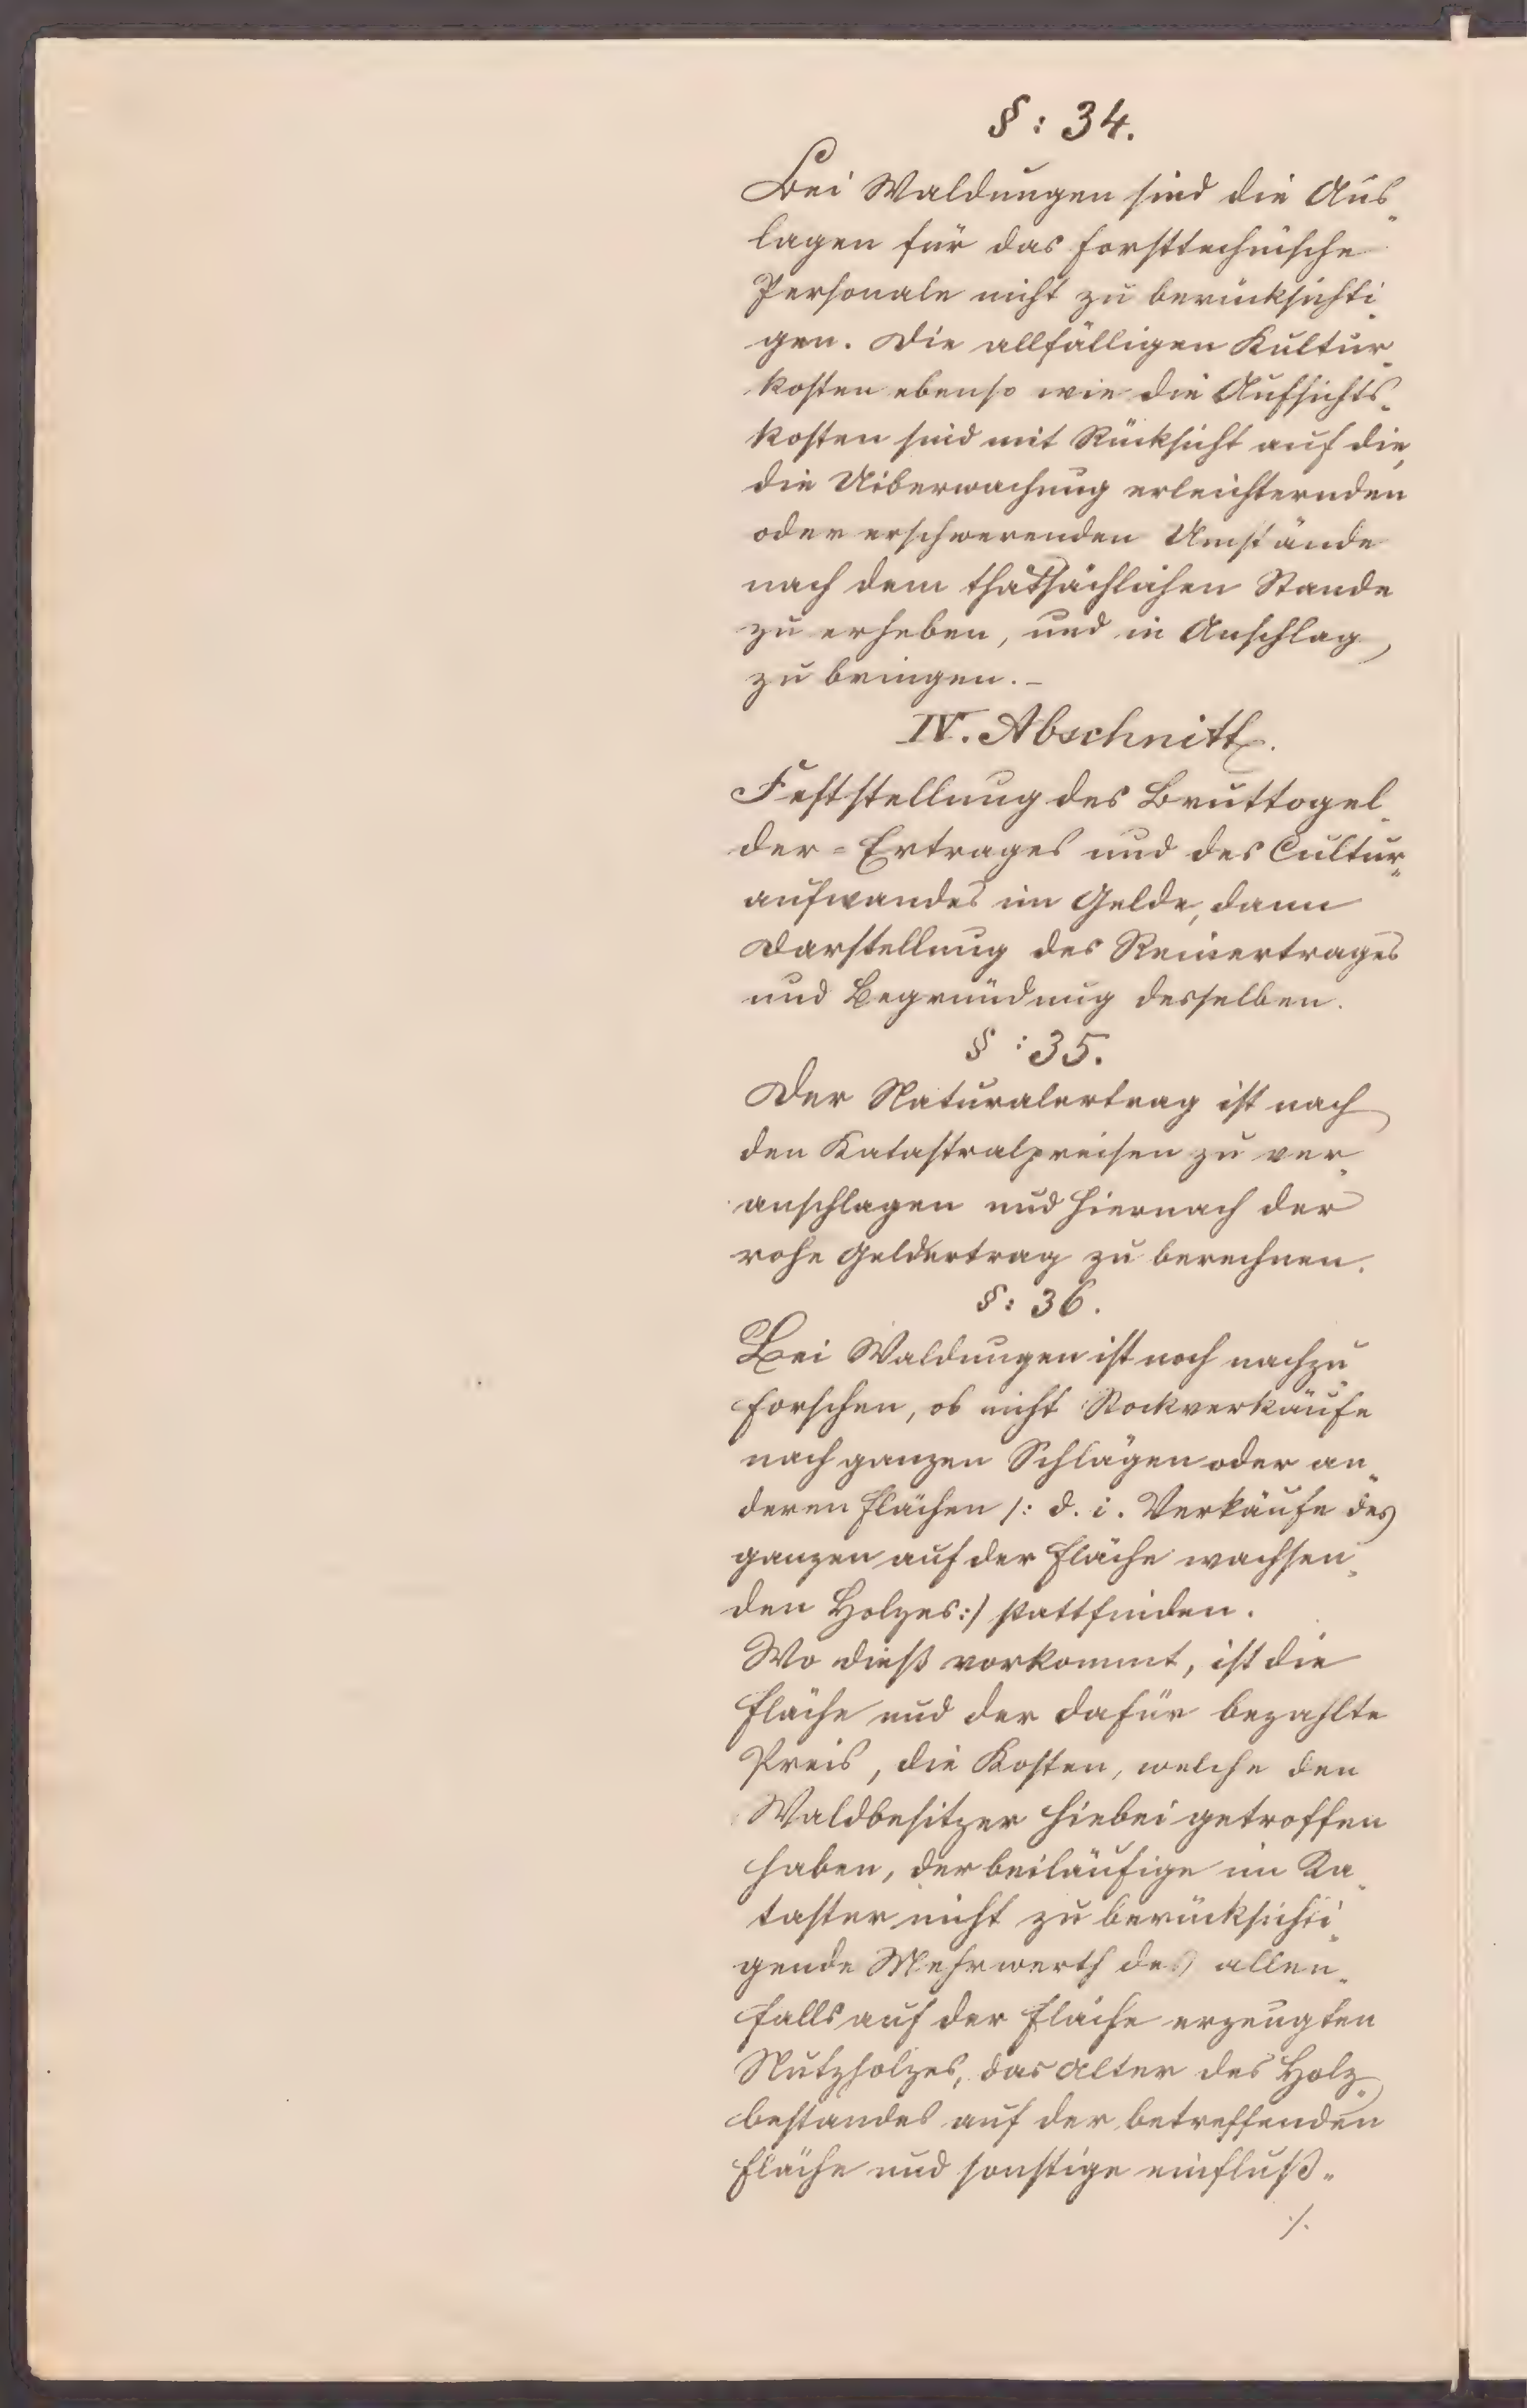 §: 34.
Bei Waldungen sind die Aus„
lagen für das forsttechnische
Personale nicht zu berücksichti„
gen. Die allfälligen Kultur„
kosten ebenso wie die Aufsichts„
kosten sind mit Rücksicht auf die,
die Uiberwachung erleichternden
oder erschwerenden Umstände
nach dem thatsächlichen Stande
zu erheben, und in Anschlag
zu bringen.-
IV. Abschnitt.
Feststellung des Bruttogel„
der-Ertrages und des Cultur„
aufwandes im Gelde, dann
Darstellung des Reinertrages
und Begründung desselben.
§: 35.
Der Naturalertrag ist nach
den Katastralpreisen zu ver„
anschlagen und hiernach der
rohe Geldertrag zu berechnen.
§: 36.
Bei Waldungen ist noch nachzu„
forschen, ob nicht Stockverkäufe
nach ganzen Schlägen oder an„
deren Flächen /: d. i. Verkäufe des
ganzen auf der Fläche wachsen„
den Holzes:/ stattfinden.
Wo dieß vorkommt, ist die
Fläche und der dafür bezahlte
Preis, die Kosten, welche den
Waldbesitzer hiebei getroffen
haben, der beiläufige im Ka„
taster nicht zu berücksichti„
gende Mehrwerth des allen„
falls auf der Fläche erzeugten
Nutzholzes, das Alter des Holz„
bestandes auf der betreffenden
Fläche und sonstige einfluß„
./.